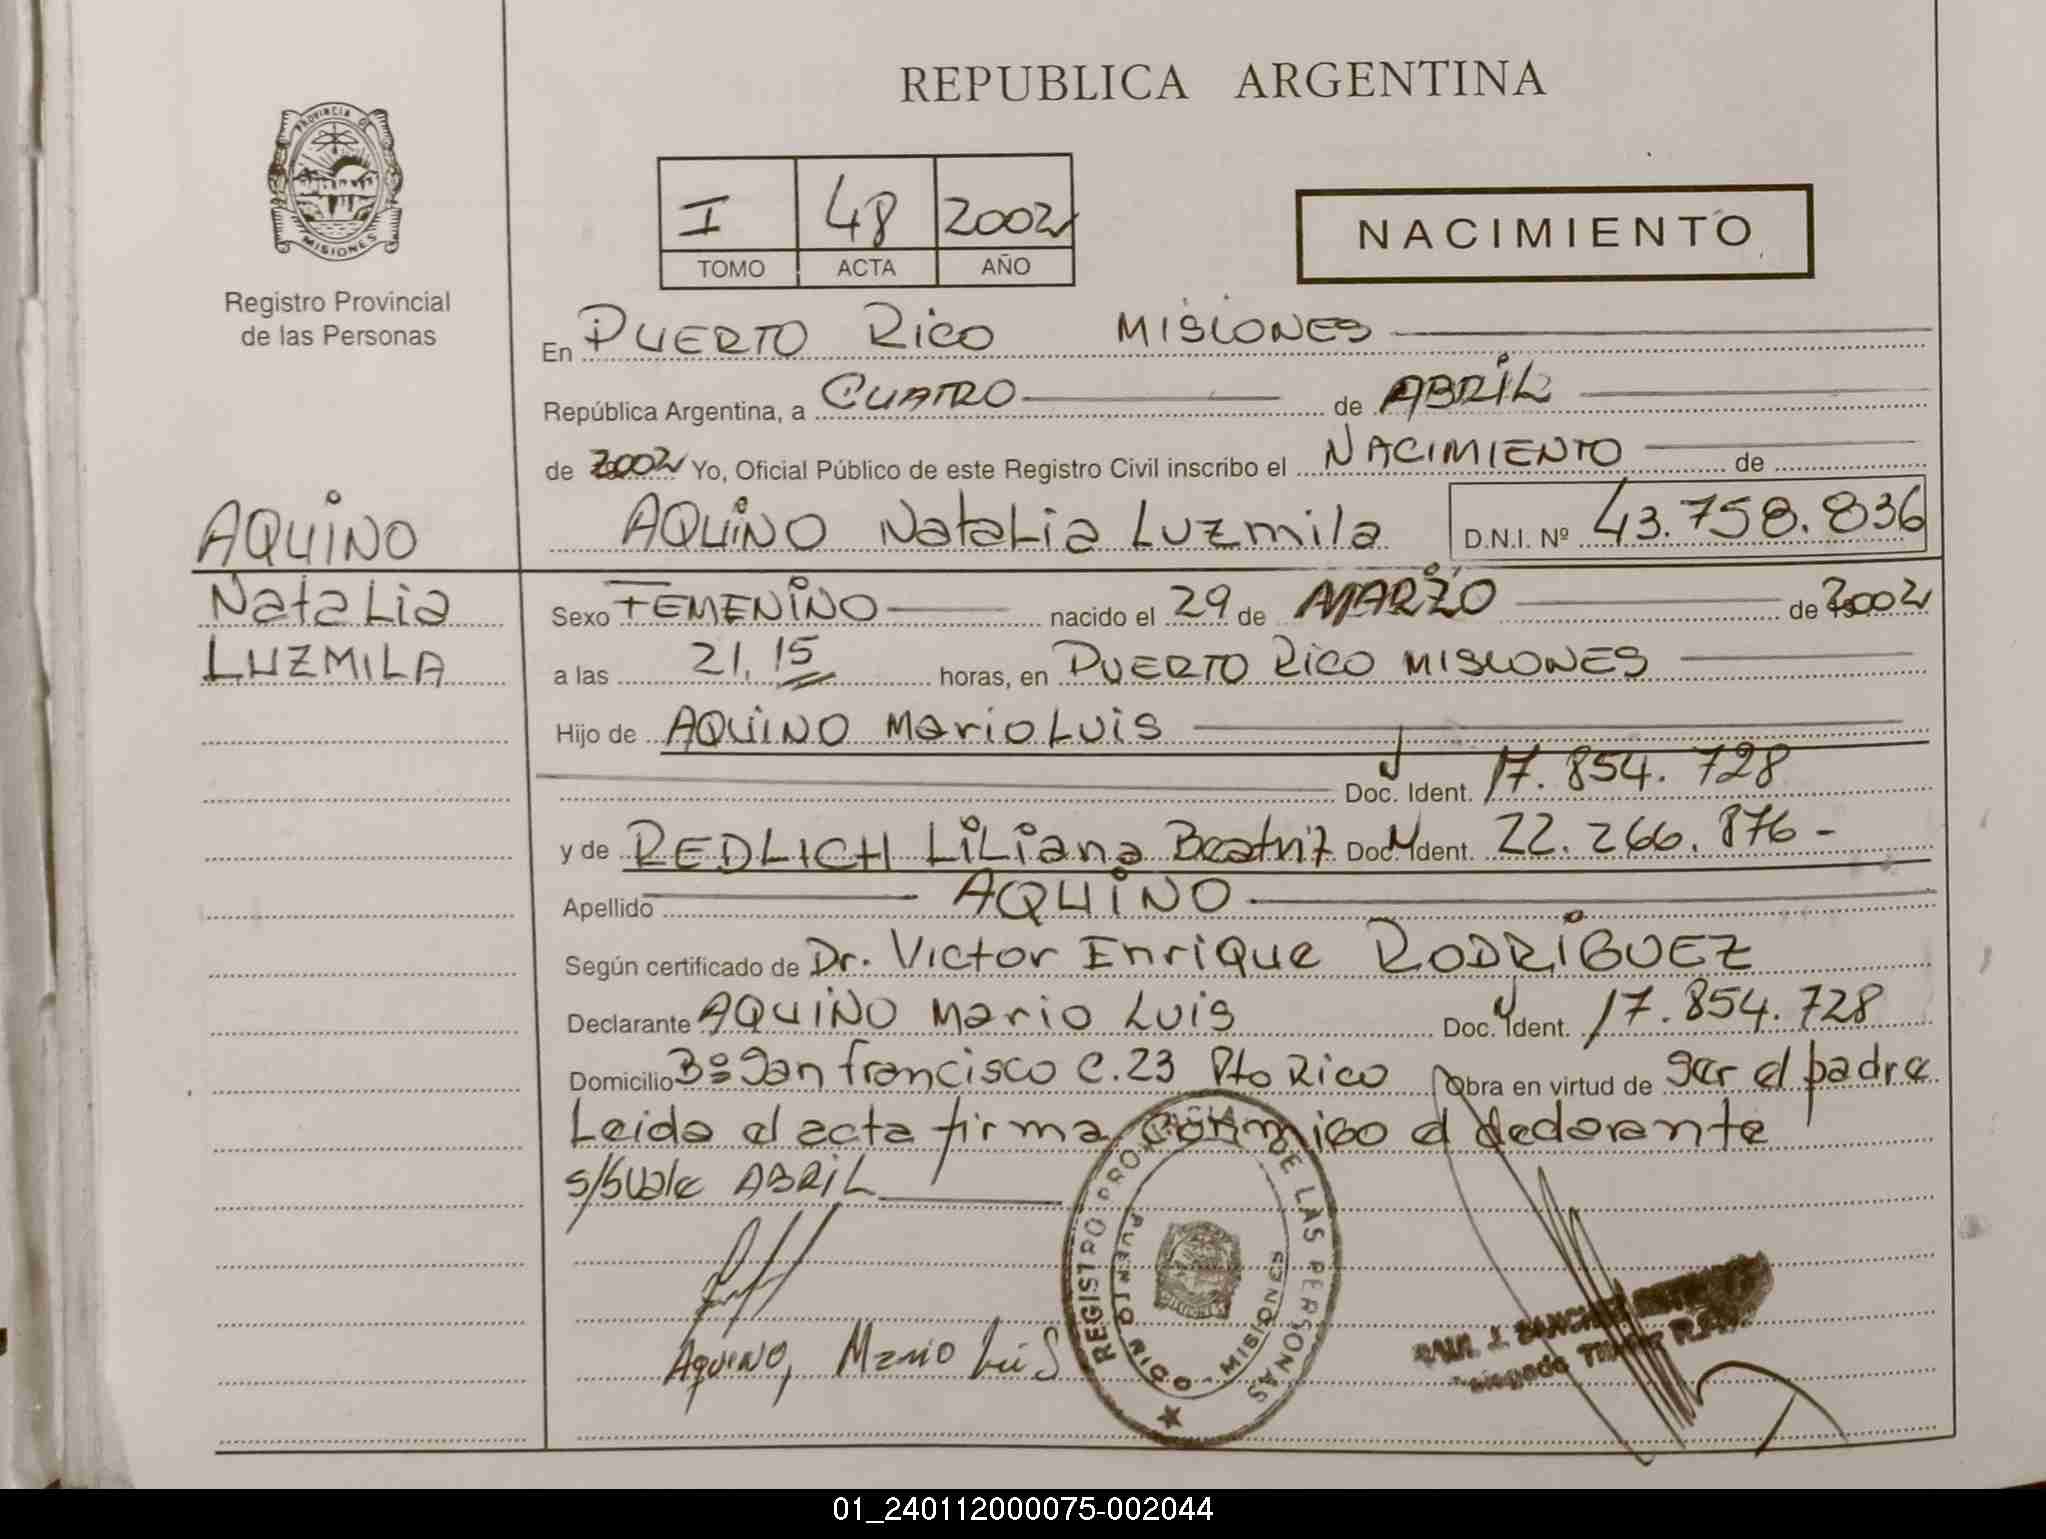 REPUBLICA ARGENTINA
PROVINCIA DE
MISIONES
Registro Provincial
de las Personas
I 48 2002
TOMO ACTA AÑO
NACIMIENTO
En PUERTO RICO MISIONES
República Argentina, a CUATRO de ABRIL
de 2002 Yo, Oficial Público de este Registro Civil inscribo el NACIMIENTO de
AQUINO Natalia Luzmila D.N.I. Nº 43.758.836
AQUINO
Natalia
LUZMILA
Sexo FEMENINO nacido el 29 de MARZO de 2002
a las 21,15 horas, en PUERTO RICO MISIONES
Hijo de AQUINO Mario Luis
Doc. Ident. 17.854.728
y de REDLICH Liliana Beatriz Doc. Ident. 22.266.876-
Apellido AQUINO
Según certificado de Dr. Victor Enrique RODRIGUEZ
Declarante AQUINO Mario Luis Doc. Ident. 17.854.728
Domicilio Bº San francisco C.23 Pto Rico Obra en virtud de ser el padre
Leida el acta firma conmigo el declarante
s/Vale ABRIL
AQUINO, Mario Luis
REGISTRO PROVINCIAL DE LAS PERSONAS
PUERTO RICO - MISIONES
RAUL J. SANCHEZ
01_240112000075-002044